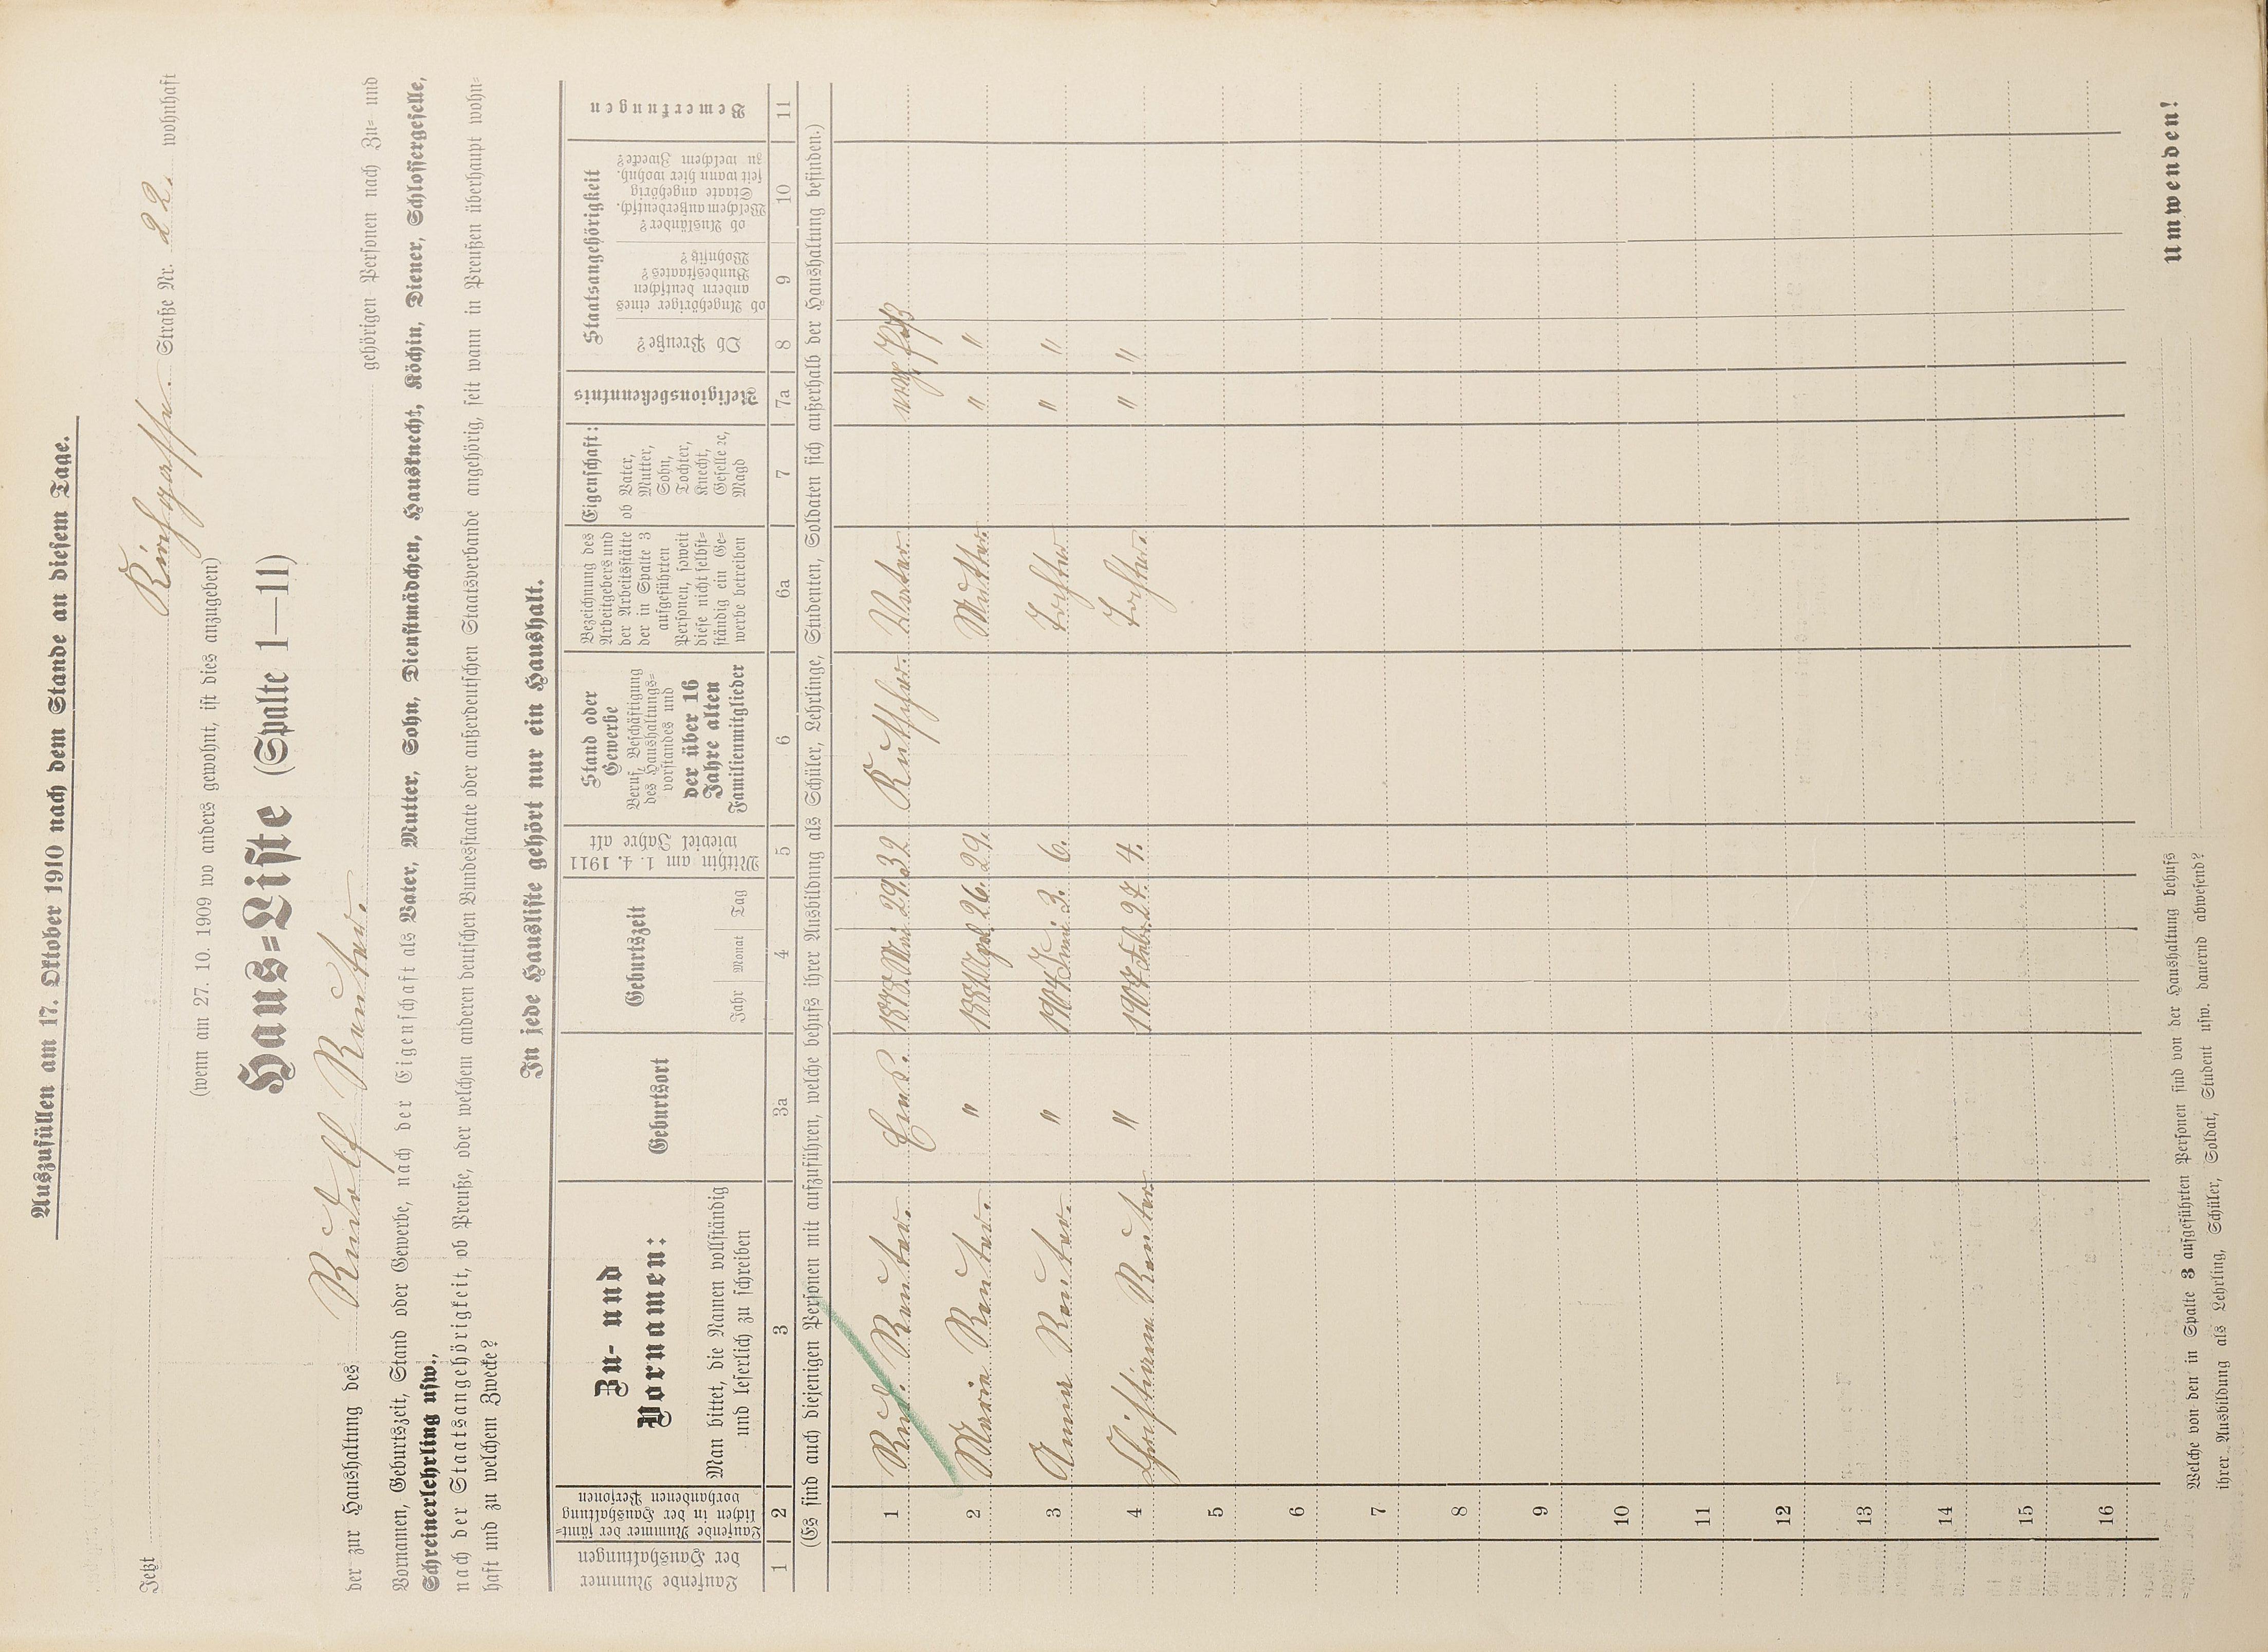 Auszufüllen am 17. Oktober 1910 nach dem Stande an diesem Tage.
Jetzt Kirchgasse Straße Nr. 22. wohnhaft
(wenn am 27. 10. 1909 wo anders gewohnt, ist dies anzugeben)
Haus=Liste (Spalte 1—11)
der zur Haushaltung des Rudolf Reuter. gehörigen Personen nach Zu= und
Vornamen, Geburtszeit, Stand oder Gewerbe, nach der Eigenschaft als Vater, Mutter, Sohn, Dienstmädchen, Hausknecht, Köchin, Diener, Schlossergeselle,
Schreinerlehrling usw.,
nach der Staatsangehörigkeit, ob Preuße, oder welchem anderen deutschen Bundesstaate oder außerdeutschen Staatsverbande angehörig, seit wann in Preußen überhaupt wohn=
haft und zu welchem Zwecke?
In jede Hausliste gehört nur ein Haushalt.
Laufende Nummer der Haushaltungen
Laufende Nummer der sämt=
lichen in der Haushaltung
vorhandenen Personen
Zu- und
Vornamen:
Man bittet, die Namen vollständig
und leserlich zu schreiben
Geburtsort
Geburtszeit
Jahr Monat Tag
Mithin am 1. 4. 1911
wieviel Jahre alt
Stand oder
Gewerbe
Beruf, Beschäftigung
des Haushaltungs=
vorstandes und
der über 16
Jahre alten
Familienmitglieder
Bezeichnung des
Arbeitgebers und
der Arbeitsstätte
der in Spalte 3
aufgeführten
Personen, soweit
diese nicht selbst=
ständig ein Ge=
werbe betreiben
Eigenschaft:
ob Vater,
Mutter,
Sohn,
Tochter,
Knecht,
Geselle ꝛc,
Magd
Religionsbekenntnis
Staatsangehörigkeit
Ob Preuße?
ob Angehöriger eines
andern deutschen
Bundesstaates?
Wohnsitz?
ob Ausländer?
Welchem außerdeutsch.
Staate angehörig
seit wann hier wohnh.
zu welchem Zwecke?
Bemerkungen
1 2 3 3a 4 5 6 6a 7 7a 8 9 10 11
(Es sind auch diejenigen Personen mit aufzuführen, welche behufs ihrer Ausbildung als Schüler, Lehrlinge, Studenten, Soldaten sich außerhalb der Haushaltung befinden.)
1 Rud. Reuter. 1878 Mai 29. 32 Kutscher. Vater
2 Marie Reuter. " 26. 29. Mutter. " "
3 Anna Reuter. " 1904 Juni 3. 6. Tochter " "
4 Christiane Reuter. " 1907 Febr. 27. 4. Tochter. " "
5
6
7
8
9
10
11
12
13
14
15
16
Welche von den in Spalte 3 aufgeführten Personen sind von der Haushaltung behufs
ihrer Ausbildung als Lehrling, Schüler, Soldat, Student usw. dauernd abwesend?
Umwenden!